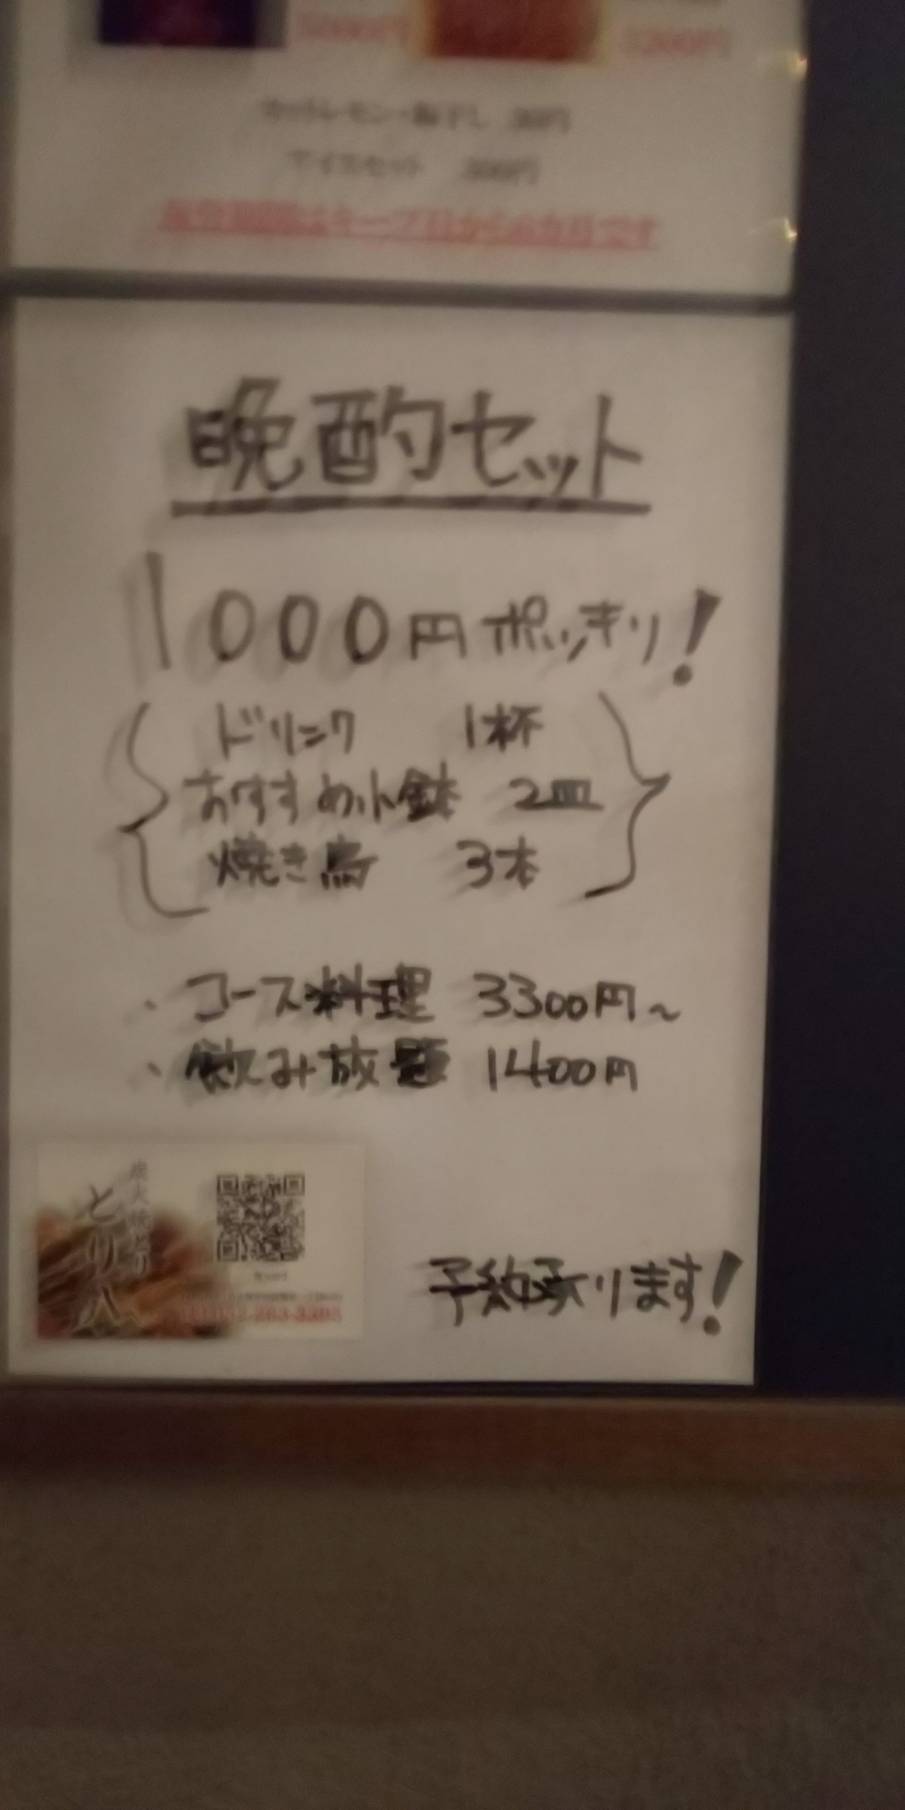 晩酌セット
1000円ポッキリ!
ドリンク 1杯
おすすめ小鉢 2皿
焼き鳥 3本
・コース料理 3300円~
・飲み放題 1400円
炭火焼とり
とり八
予約承ります!